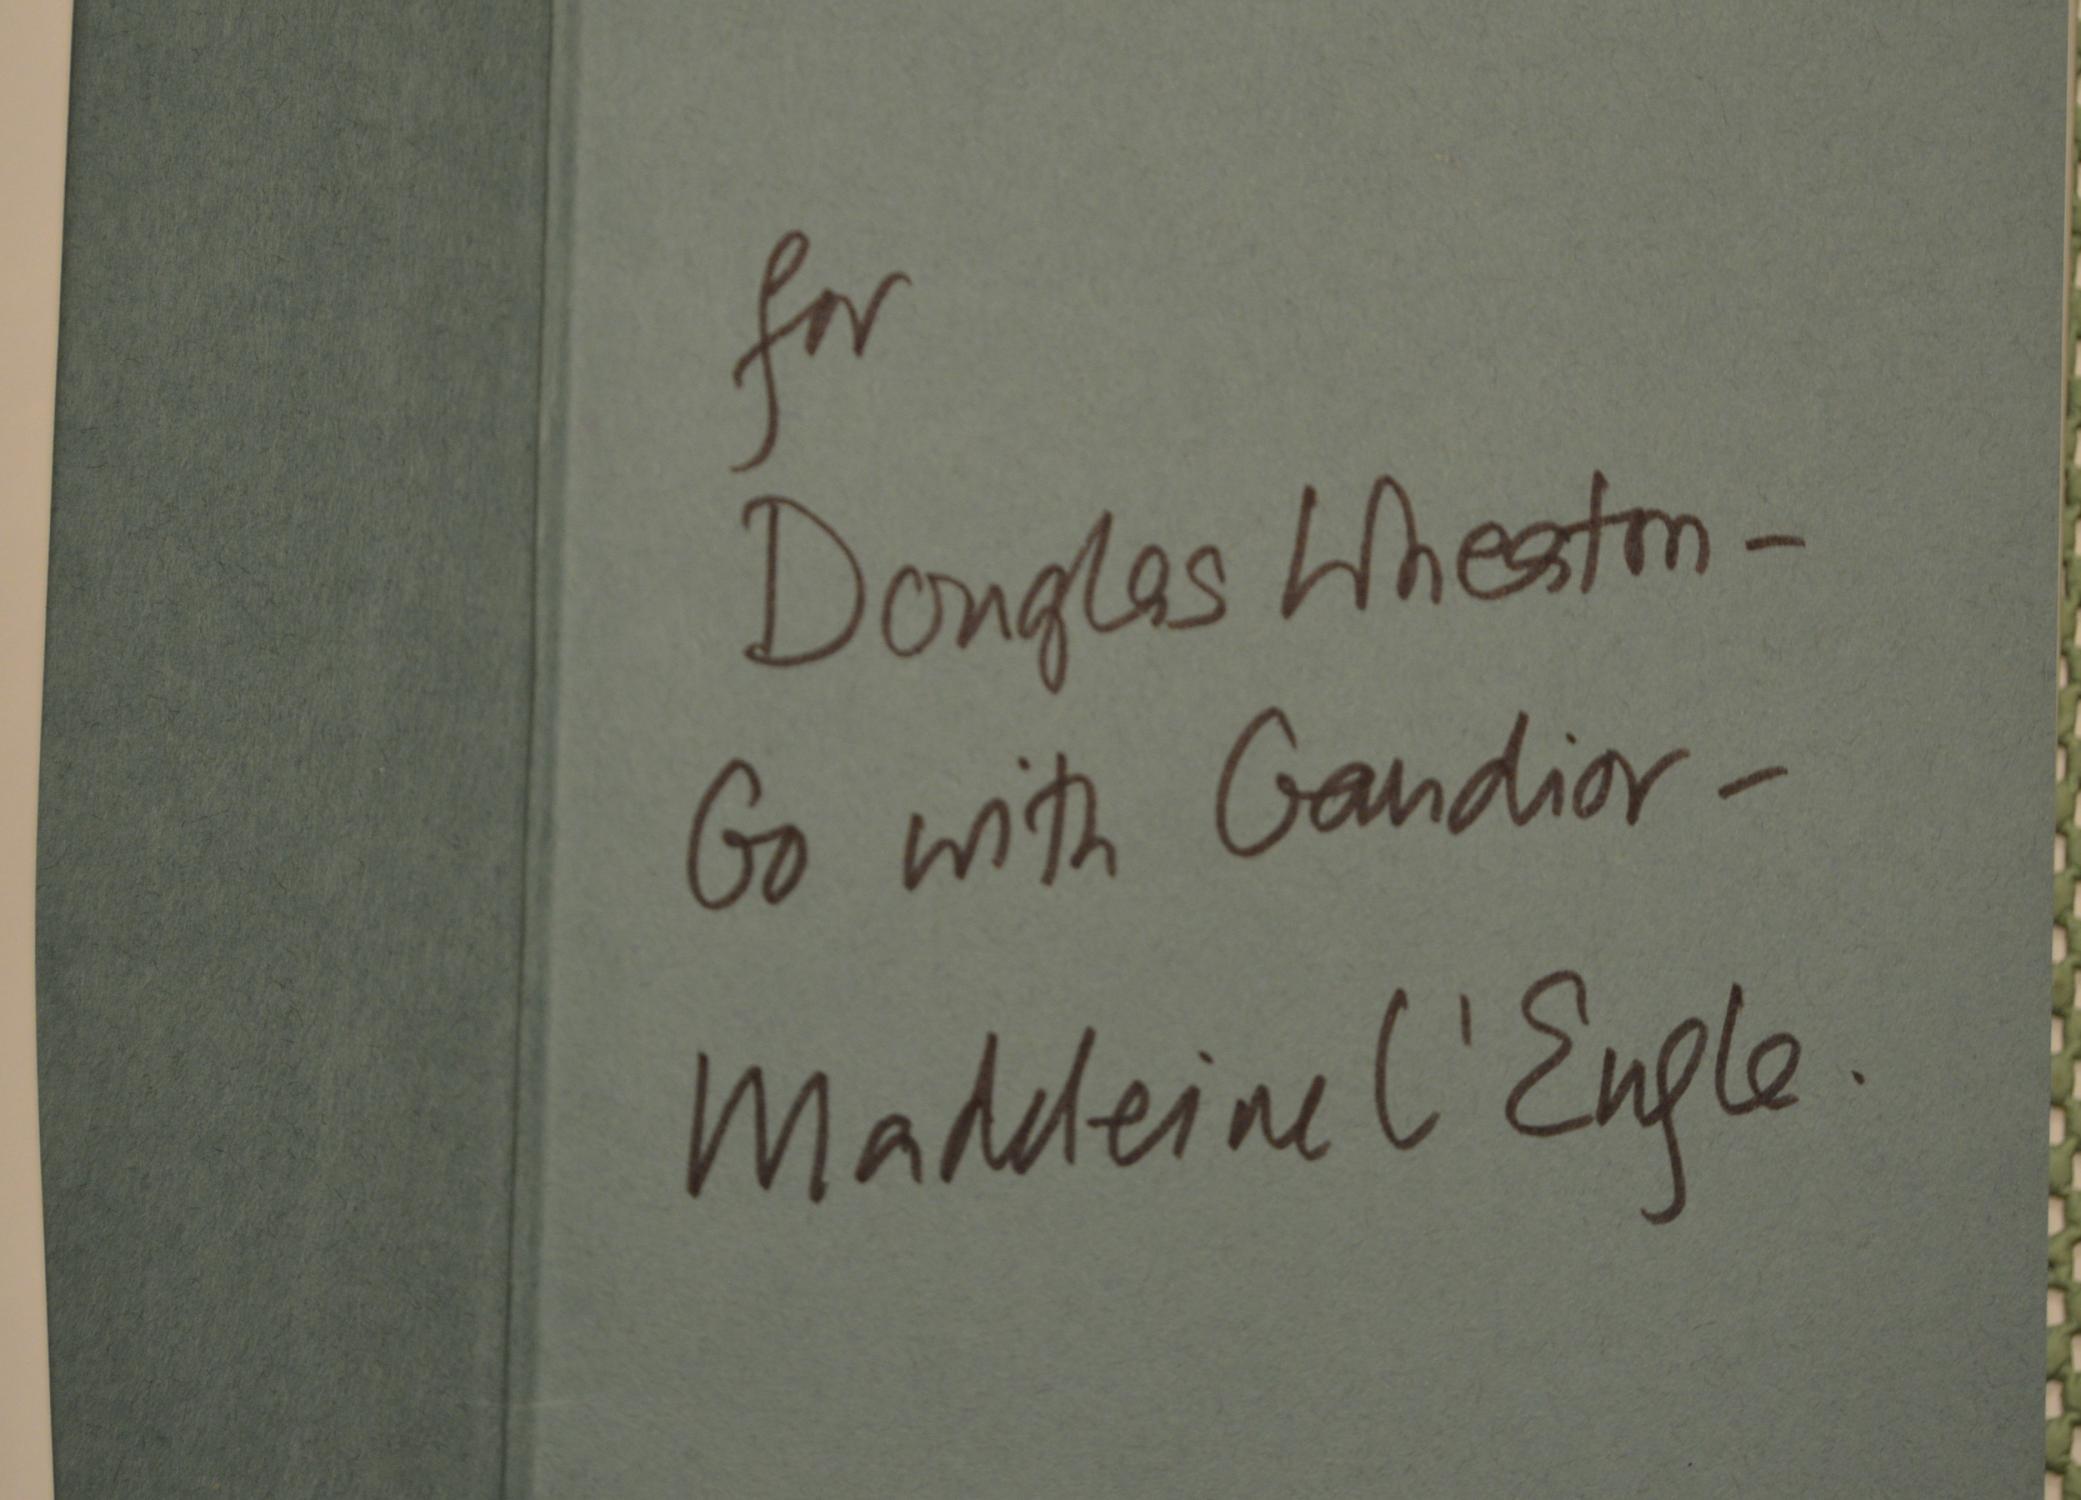 for
Douglas Wheaton -
Go with Gaudior -
Madeleine l'Engle.